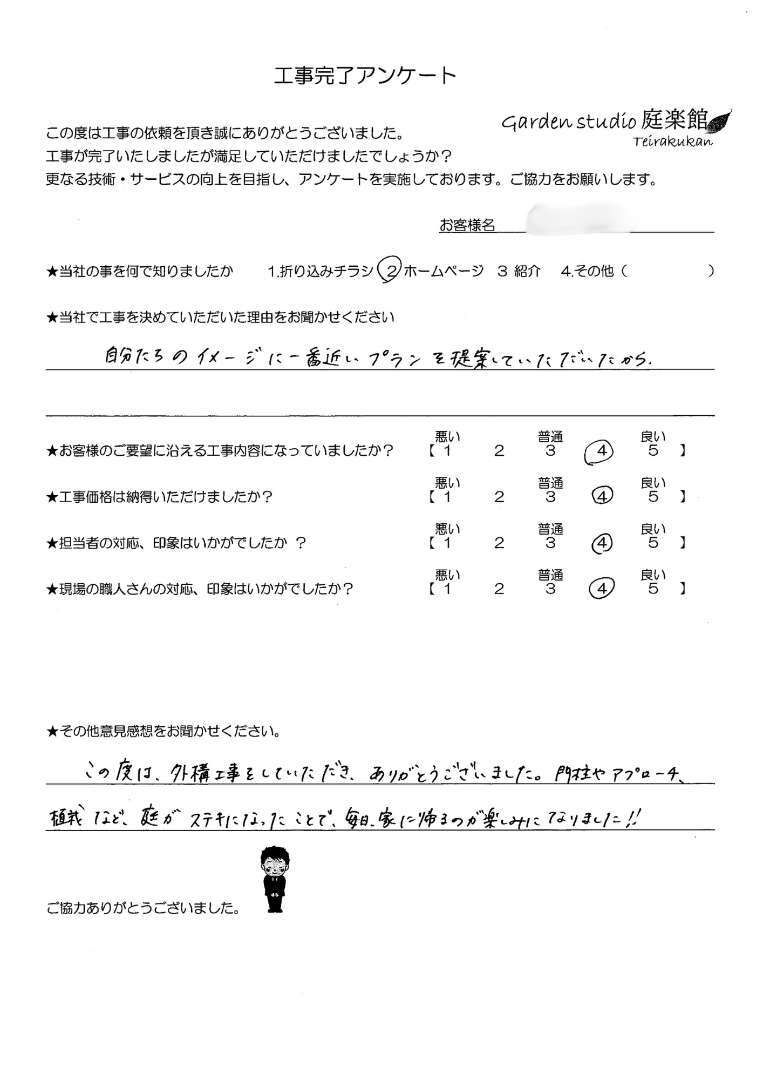 工事完了アンケート
Garden studio 庭楽館
Teirakukan
この度は工事の依頼を頂き誠にありがとうございました。
工事が完了いたしましたが満足していただけましたでしょうか？
更なる技術・サービスの向上を目指し、アンケートを実施しております。ご協力をお願いします。
お客様名
★当社の事を何で知りましたか 1.折り込みチラシ 2 ホームページ 3 紹介 4.その他（ ）
★当社で工事を決めていただいた理由をお聞かせください
自分たちのイメージに一番近いプランを提案していただいたから.
悪い 普通 良い
★お客様のご要望に沿える工事内容になっていましたか？ 【 1 2 3 4 5 】
悪い 普通 良い
★工事価格は納得いただけましたか？ 【 1 2 3 4 5 】
悪い 普通 良い
★担当者の対応、印象はいかがでしたか ？ 【 1 2 3 4 5 】
悪い 普通 良い
★現場の職人さんの対応、印象はいかがでしたか？ 【 1 2 3 4 5 】
★その他意見感想をお聞かせください。
この度は、外構工事をしていただき、ありがとうございました。門柱やアプローチ、
植栽など、庭がステキになったことで、毎日、家に帰るのが楽しみになりました!!
ご協力ありがとうございました。